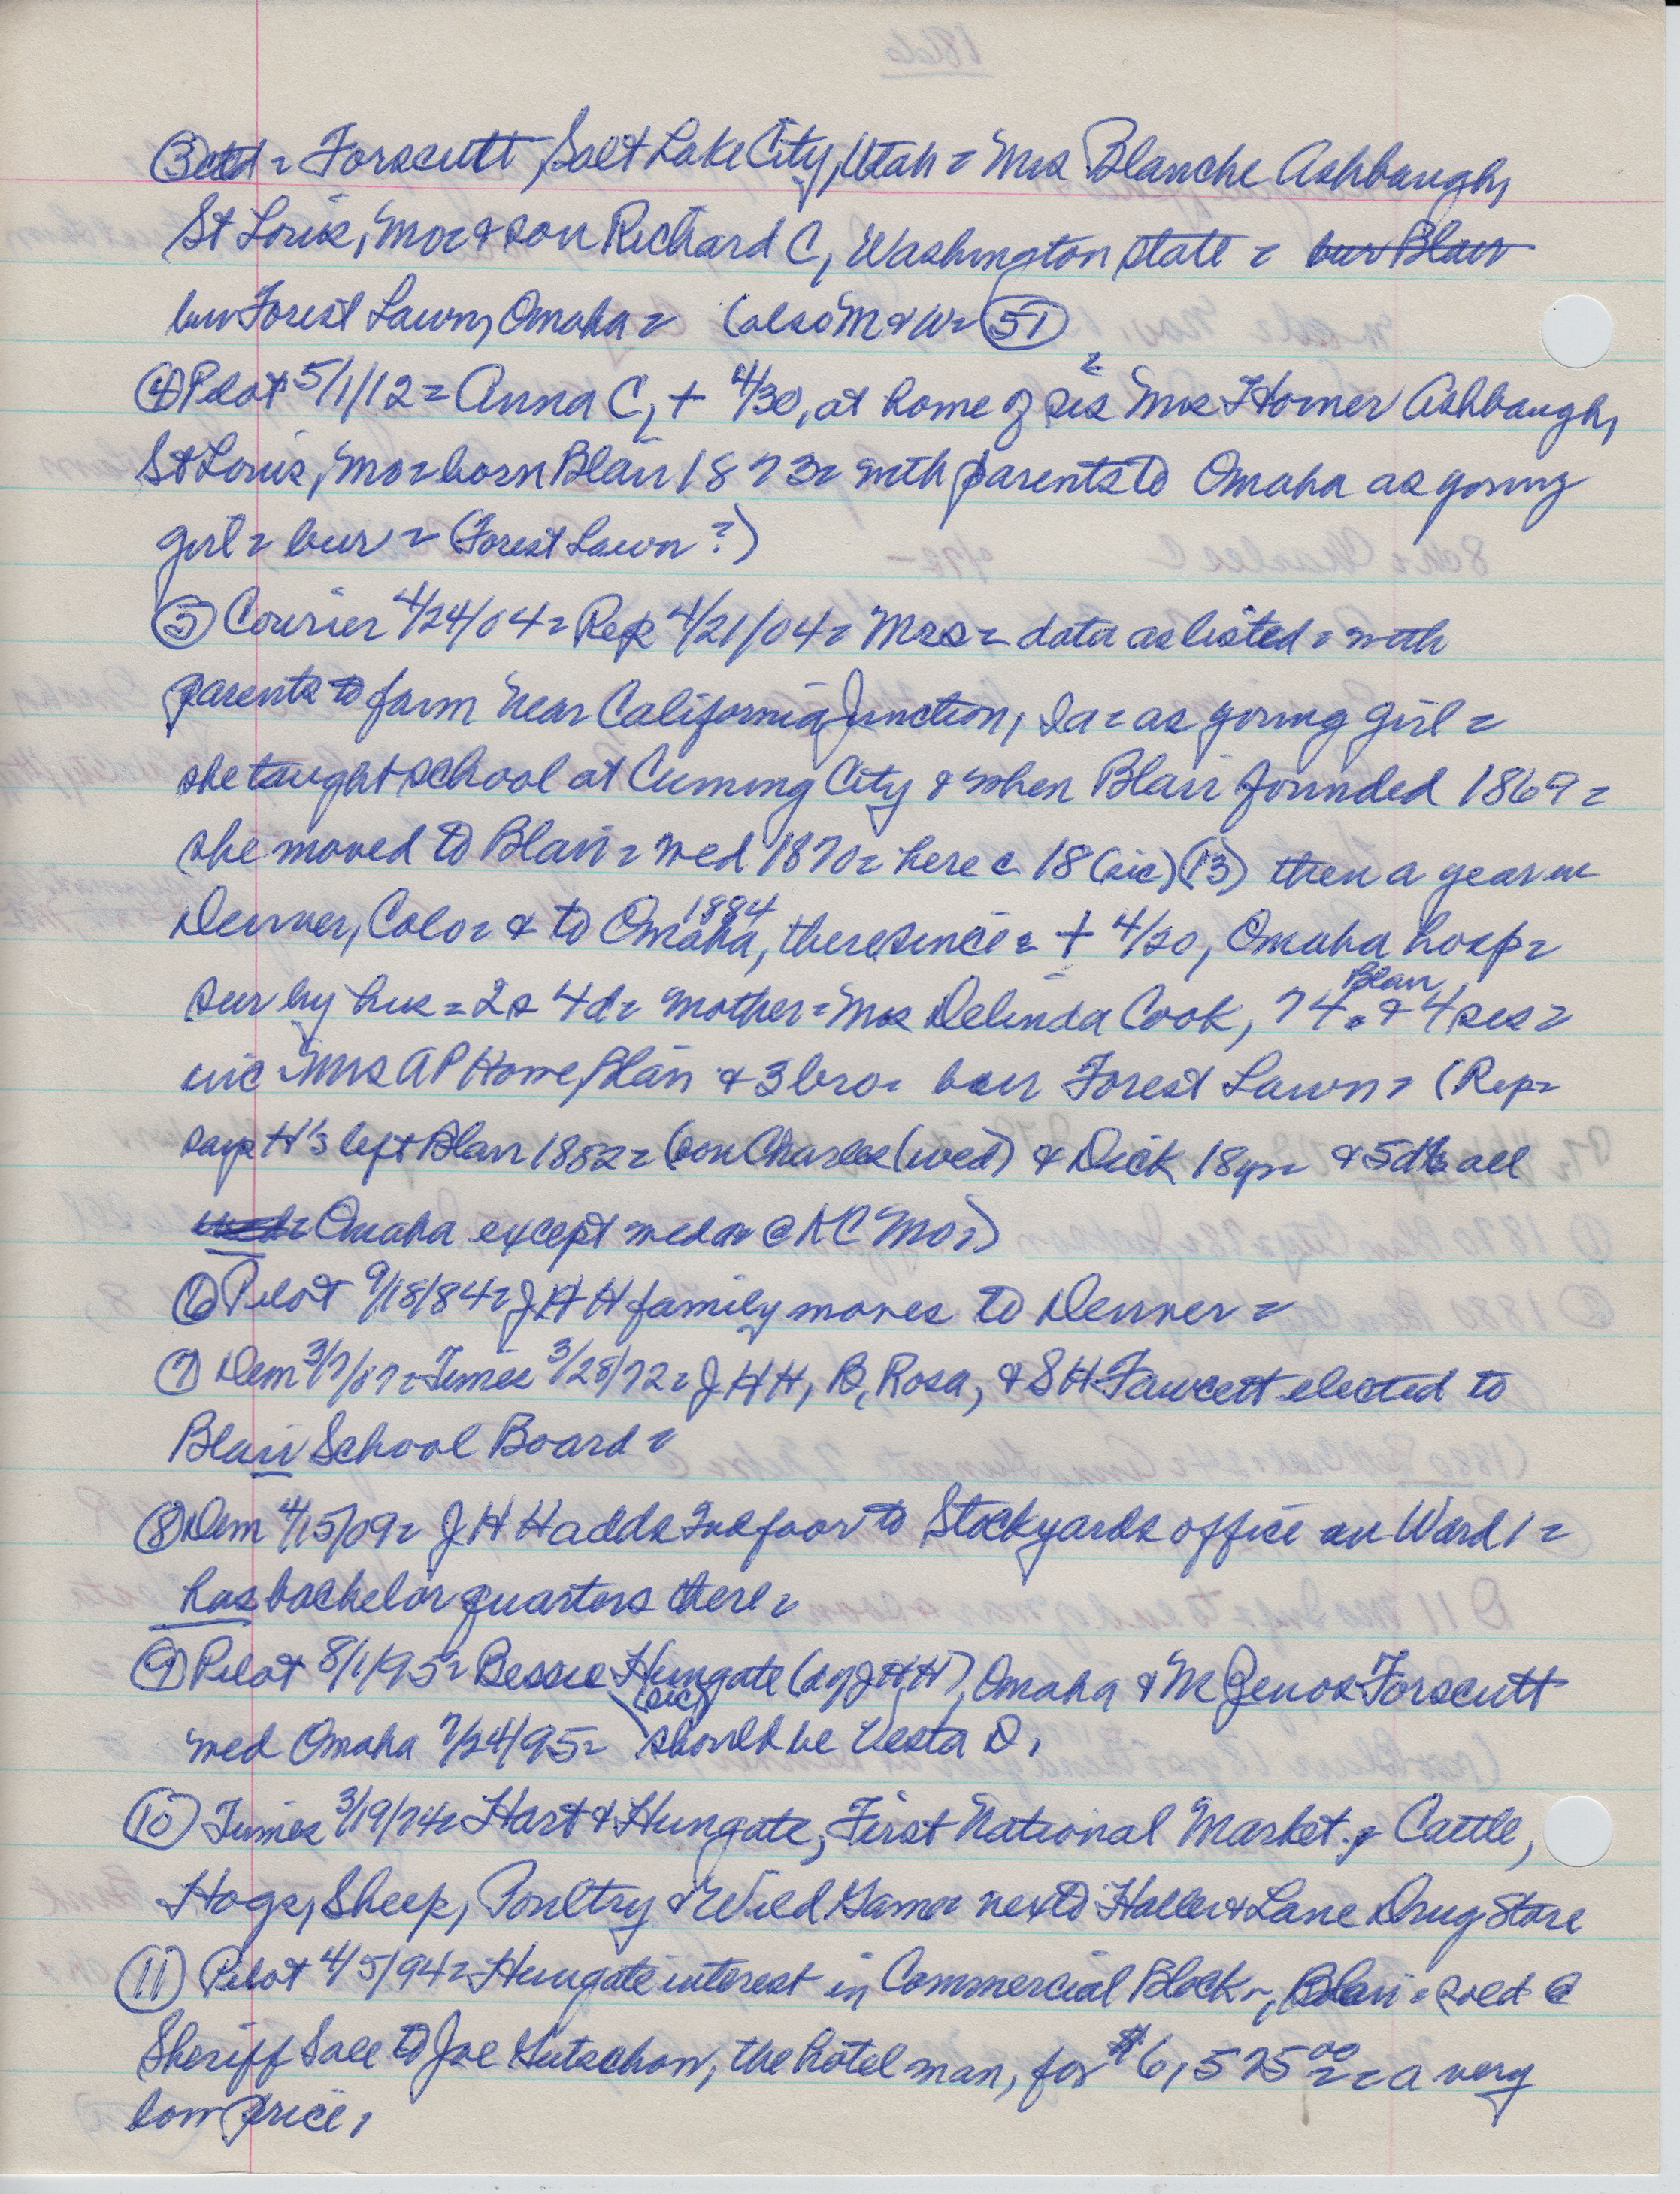 ③ctd = Forscutt, Salt Lake City, Utah = Mrs Blanche Ashbaugh,
St Louis, Mo = & son Richard C, Washington state = bur Blair
bur Forest Lawn, Omaha = (also M & W = 51)
④ Pilot 5/1/12 = Anna C, + 4/30, at home of sis = Mrs Homer Ashbaugh,
St Louis, Mo = born Blair 1873 = with parents to Omaha as young
girl = bur = (Forest Lawn?)
⑤ Courier 4/24/04 = Rep 4/21/04 = Mrs = data as listed = with
parents to farm near California Junction, Ia = as young girl =
she taught school at Cuming City & when Blair founded 1869 =
she moved to Blair = wed 1870 = here c 18 (sic) (13) then a year in
Denver, Colo = & to Omaha 1884, there since = + 4/20, Omaha hosp =
sur by hus = 2s 4d = mother = Mrs Delinda Cook, 74, Blair & 4 sis =
inc Mrs A P Howe, Blair & 3 bro = bur Forest Lawn = (Rep =
says H's left Blair 1882 = (son Charles (wed) & Dick 18yr = & 5 dts all
Omaha except wed @ KC Mo =)
⑥ Pilot 9/18/84 = J H H family moves to Denver =
⑦ Dem 3/7/07 = Times 3/28/72 = J H H, B, Rosa, & S H Fawcett elected to
Blair School Board =
⑧ Dem 4/15/09 = J H H adds 2nd floor to Stockyards office in Ward 1 =
has bachelor quarters there =
⑨ Pilot 8/1/95 = Bessie Hungate (dg J H H), Omaha & M Zenos Forscutt
wed Omaha 7/24/95 = (sic) should be Vesta D,
⑩ Times 3/19/74 = Hart & Hungate, First National Market = Cattle,
Hogs, Sheep, Poultry & Wild Game = next to Haller & Lane Drug Store
⑪ Pilot 4/5/94 = Hungate interest in Commercial Block, Blair = sold @
Sheriff Sale to Joe Gutschow, the hotel man, for $6,525 00 = a very
low price,